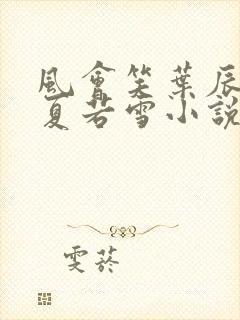 風會笑葉辰
夏若雪小說
雯菸